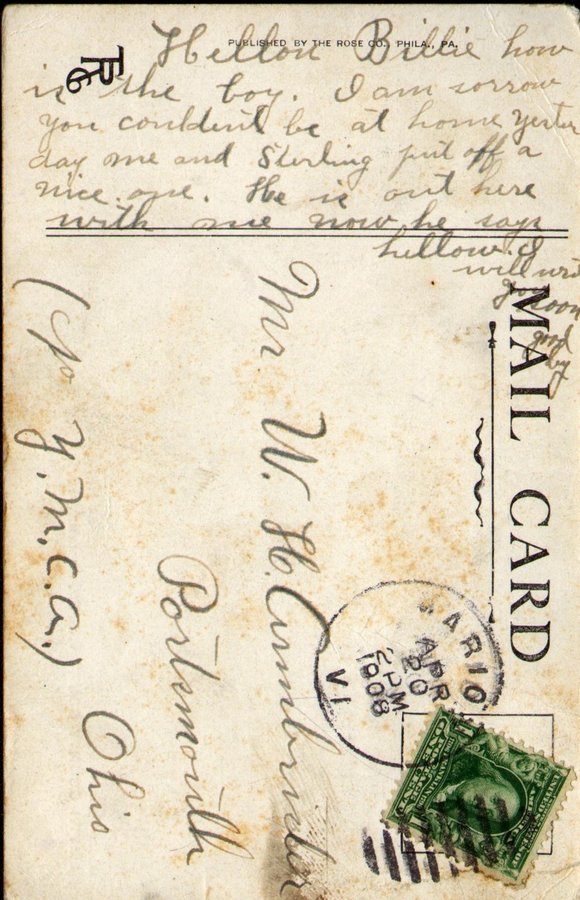 PUBLISHED BY THE ROSE CO., PHILA., PA.
TRC
Hellon Billie how
is the boy. I am sorrow
you couldent be at home yester
day me and Sterling put off a
nice one. He is out here
with me now he says
hellow. I
will wri
you soon
good
by
MAIL CARD
Mr W. H. Cumbrinter
Portsmouth
Ohio
(% Y.M.C.A.)
ARIO
APR
20
2 PM
1908
VI